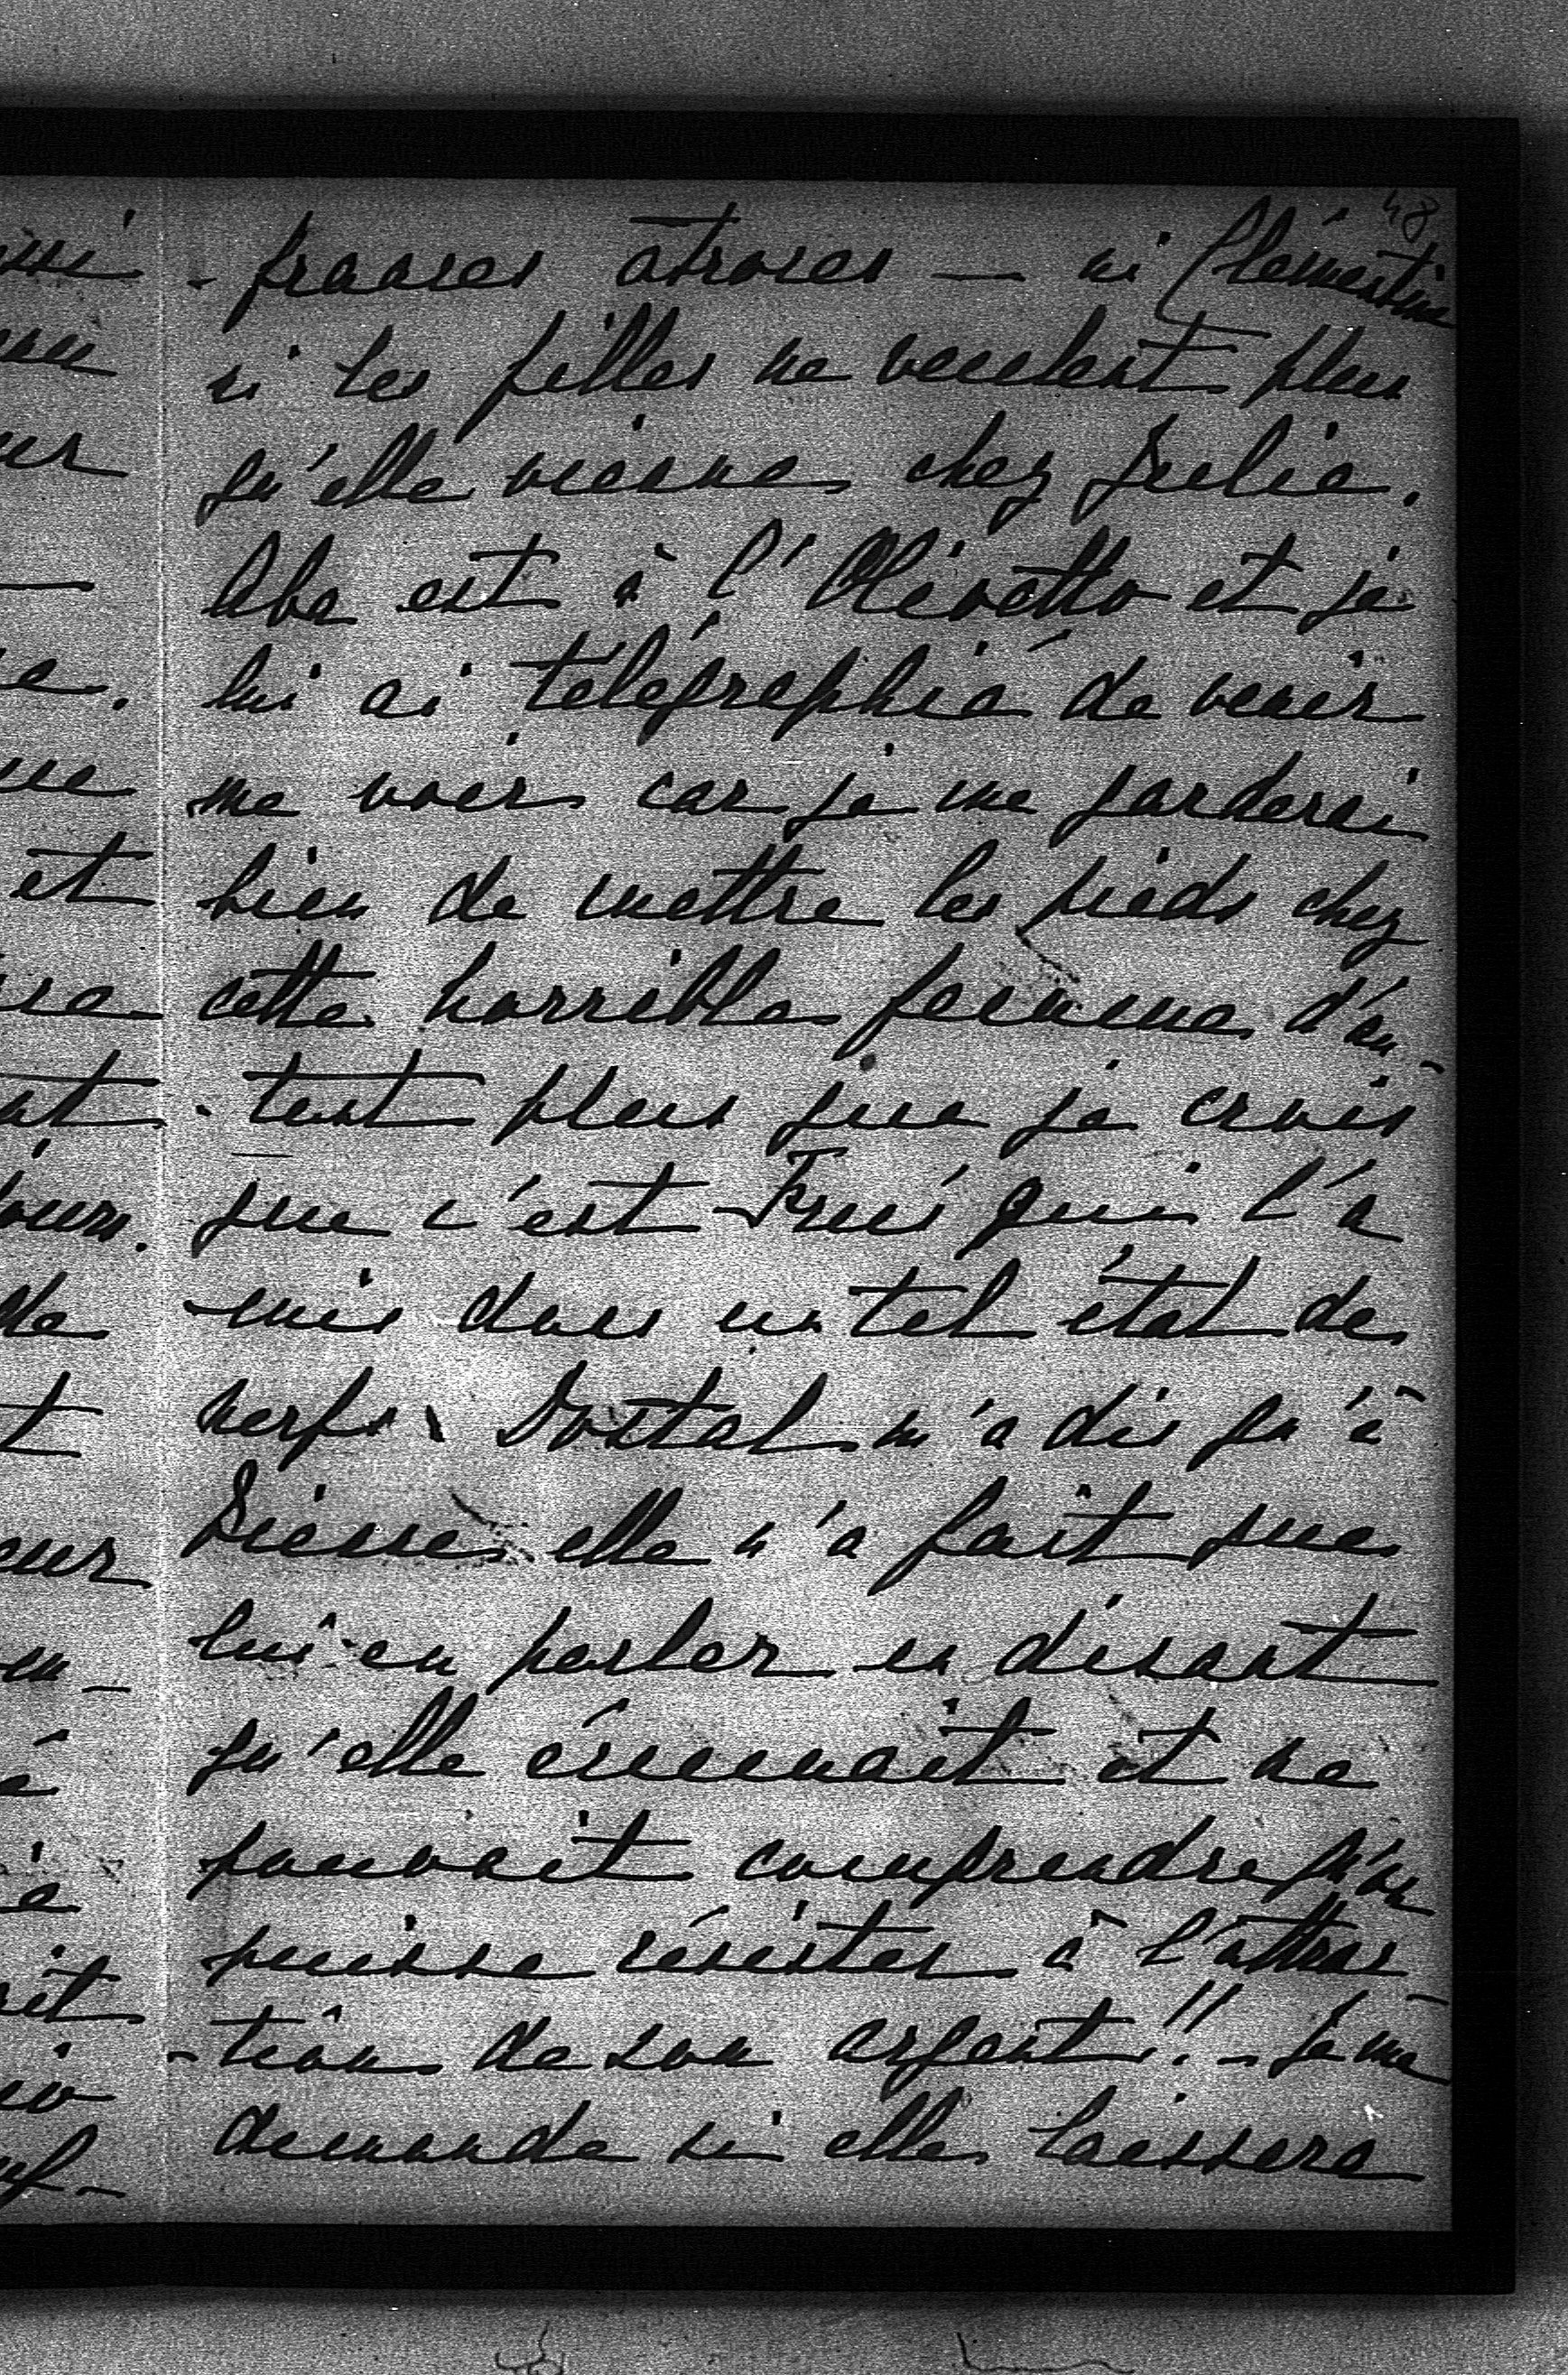 48
-frances atroces — ni Clémentine
ni les filles ne veulent plus
qu'elle vienne chez Julie.
Aba est à l'Olivetto et je
lui ai télégraphié de venir
me voir car je me garderai
bien de mettre les pieds chez
cette horrible femme d'au-
-tant plus que je crois
que c'est qui l'a
mis dans un tel état de
nerfs. Dostal m'a dis qu'à
Vienne elle n'a fait que
lui en parler en disant
qu'elle et ne
pouvait comprendre qu'on
puisse résister à l'attrac-
-tion de son argent!! - Je me
demande si elle laissera